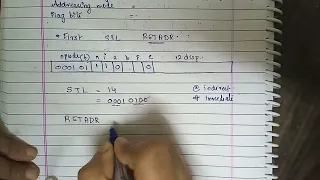 Addressing mode
Flag bits
* First STL RETADR
opcode(6) n i x b p e 12 disp
0001 01 1 1 0 0
STL = 14
= 0001 0100
indirect
# Immediate
RETADR